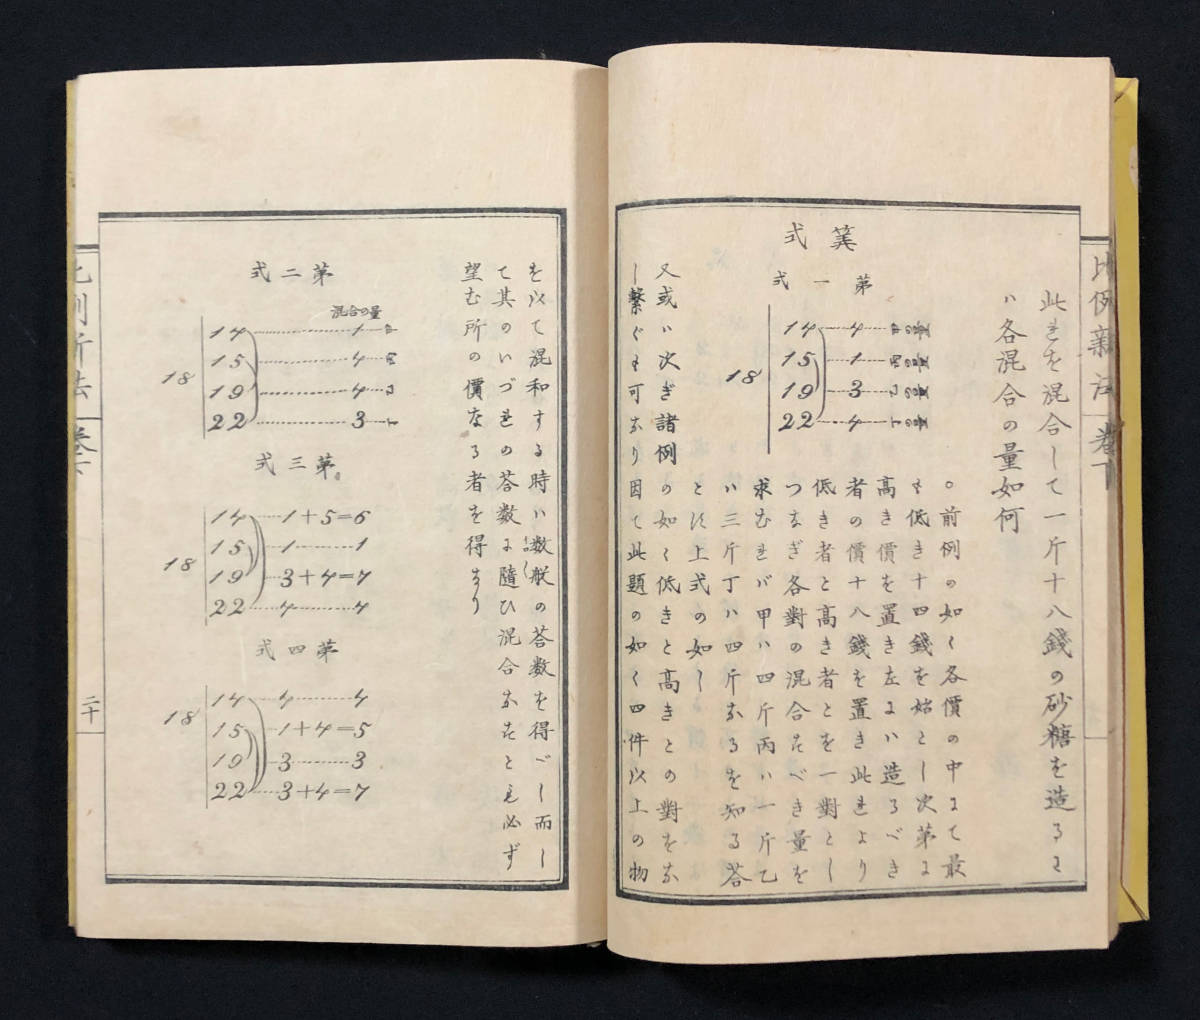 比例新法 卷下
此れを混合して一斤十八錢の砂糖を造るに
ハ各混合の量如何
筭式
第一式
18
14 4 甲の量
15 1 丙の量
19 3 乙の量
22 4 丁の量
○前例の如く各價の中にて最
も低き十四錢を始とし次第に
高き價を置き左にハ造るべき
者の價十八錢を置き此れより
低き者と高き者とを一對とし
つなぎ各對の混合すべき量を
求むれバ甲ハ四斤丙ハ一斤乙
ハ三斤丁ハ四斤なるを知る答
とす上式の如し
又或ハ次ぎ諸例の如く低きと高きとの對をな
し繫ぐも可なり因て此題の如く四件以上の物
を以て混和する時ハ数般の荅数を得べし而し
て其のいづれの荅数に隨ひ混合なすとも必ず
望む所の價なる者を得るなり
第二式
混合の量
18
14 1 甲
15 4 丙
19 4 乙
22 3 丁
第三式
18
14 1+5=6
15 1 1
19 3+4=7
22 4 4
第四式
18
14 4 4
15 1+4=5
19 3 3
22 3+4=7
比例新法 卷下
二十